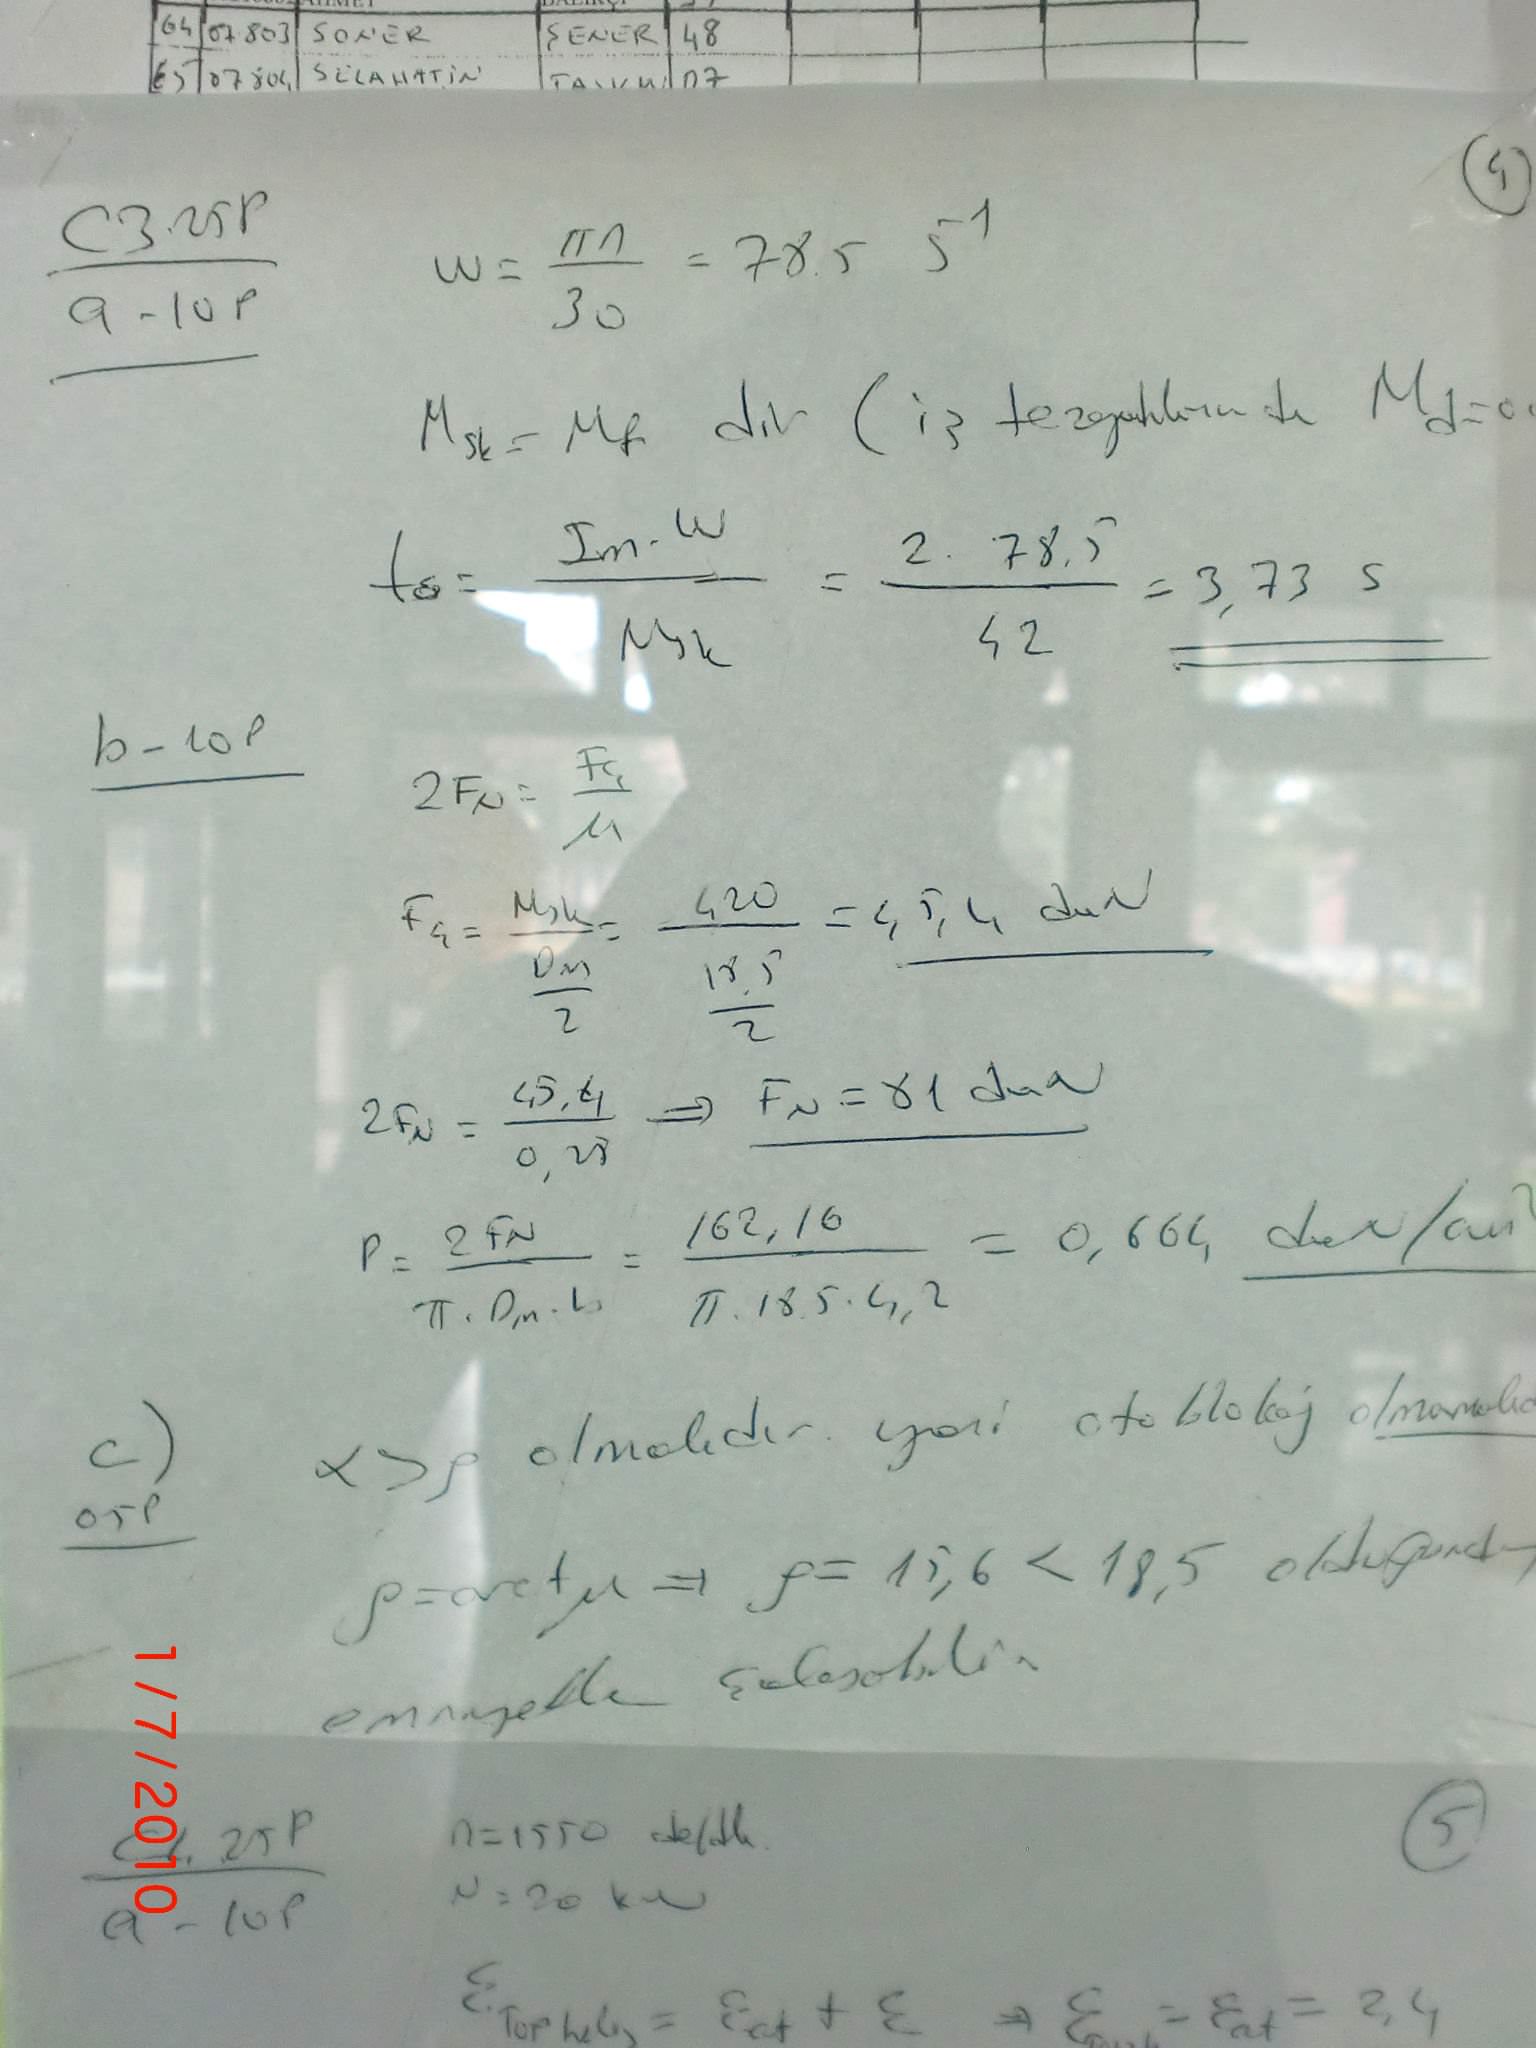 64 07803 SONER ŞENER 48
65 07804 SELAHATİN 07
4
C3.25P
a-10P
w = πn / 30 = 78.5 s⁻¹
Msk = Mf dir (iş tezgahlarında Md=0
to = Im.w / Msk = 2. 78,5 / 42 = 3,73 s
b-10P
2FN = Fç / μ
Fç = Msk / Dm/2 = 420 / 18.5/2 = 45,4 daN
2FN = 45,4 / 0,28 ⇒ FN = 81 daN
P = 2FN / π.Dm.b = 162,16 / π.18.5.4,2 = 0,664 daN/cm²
c)
05P
α>ρ olmalıdır. yani otoblokaj olmamalıd
ρ=arctμ ⇒ ρ= 15,6 < 18,5 olduğundan
emniyetle çalışabilir
1/7/2010
5
C4.25P
a-10P
n=1550 de/dk.
N=20 kW
ε = εat + ε ⇒ ε = εat = 2,4